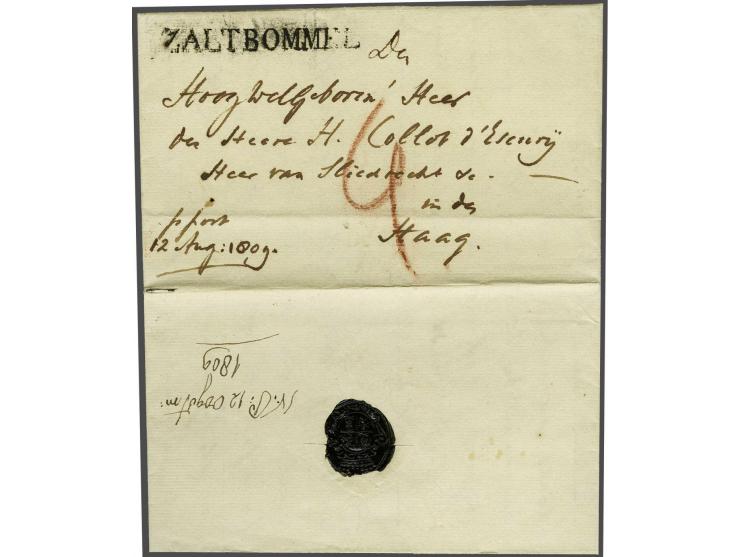 ZALTBOMMEL
Den
HoogWelgeboren Heer
den Heere H. Collot d'Escurÿ
Heer van Sliedrecht &c. —
in den
Haag.
p post
12 Aug: 1809.
4
12
1809